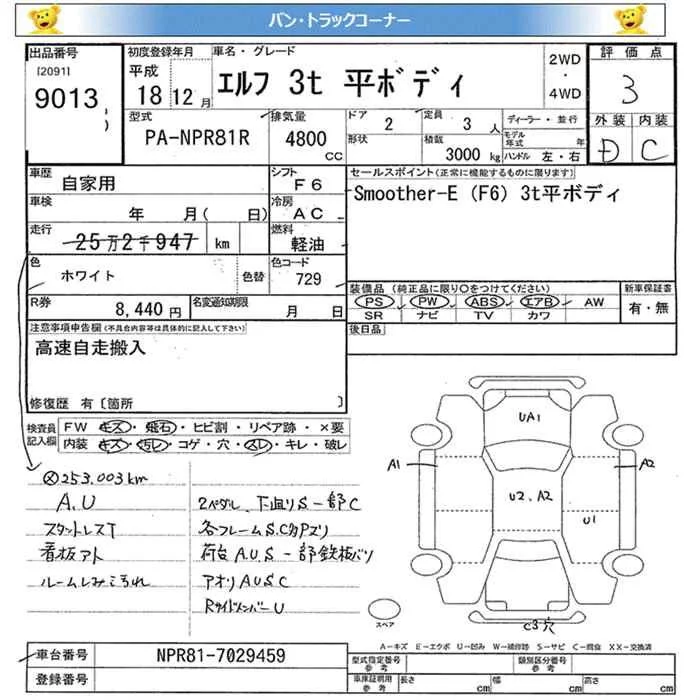 バン・トラックコーナー
出品番号
[2091]
9013
初度登録年月
平成
18 12月
車名・グレード
エルフ 3t 平ボディ
2WD
・
4WD
評価点
3
外装 内装
D C
型式
PA-NPR81R
排気量
4800
CC
ドア
2
形状
定員
3 人
積載
3000 kg
ディーラー・並行
モデル年式 年
ハンドル 左・右
車歴
自家用
シフト
F6
車検
年 月( 日)
冷房
AC
走行
25万2千947 km
燃料
軽油
色
ホワイト
色替
色コード
729
R券
8,440円
名変通知期限
月 日
セールスポイント(正常に機能するものに限ります)
Smoother-E (F6) 3t平ボディ
装備品 (純正品に限り○をつけてください)
PS PW ABS エアB AW
SR ナビ TV カワ
新車保証書
有・無
後日品
注意事項申告欄(不具合内容等は具体的に記入して下さい)
高速自走搬入
修復歴 有〔箇所 〕
検査員記入欄
FW キズ・飛石・ヒビ割・リペア跡・×要
内装 キズ・汚レ・コゲ・穴・スレ・キレ・破レ
253.003km
A.U
スタットレスT
看板アト
ルームしみこうれ
2ペダル、下廻りS一部C
各フレームS.C穴アリ
荷台A.U.S一部鉄板バリ
アオリAUSC
RサイドメンバーU
UA1
A1
A2
U2、A2
U1
C3穴
スペア
A-キズ E-エクボ U-凹み W-補修跡 S-サビ C-腐食 XX-交換済
車台番号
NPR81-7029459
登録番号
型式指定番号
参考
類別区分番号
参考
車庫証明用
参考
長さ cm
幅 cm
高さ cm